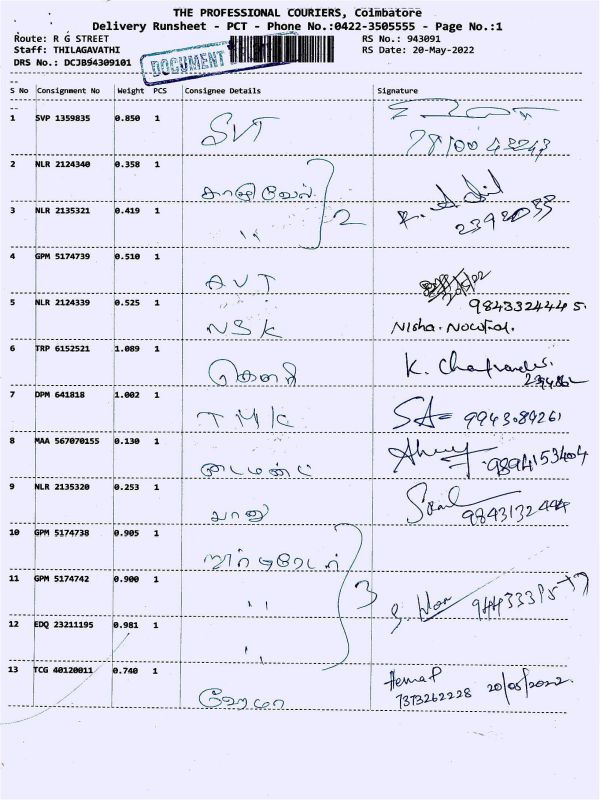 THE PROFESSIONAL COURIERS, Coimbatore
Delivery Runsheet - PCT - Phone No.:0422-3505555 - Page No.:1
Route: R G STREET RS No.: 943091
Staff: THILAGAVATHI RS Date: 20-May-2022
DRS No.: DCJB94309101
DOCUMENT
S No Consignment No Weight PCS Consignee Details Signature
1 SVP 1359835 0.850 1
SVT
2 NLR 2124340 0.358 1
3 NLR 2135321 0.419 1
" 2
4 GPM 5174739 0.510 1
AVT
5 NLR 2124339 0.525 1 9843324445.
NSK Nisha.
6 TRP 6152521 1.089 1
கௌரி
7 DPM 641818 1.002 1
TMK 9943084261
8 MAA 567070155 0.130 1
டைமண்ட் 9894153404
9 NLR 2135320 0.253 1
பானு 9843132444
10 GPM 5174738 0.905 1
11 GPM 5174742 0.900 1
" 3
12 EDQ 23211195 0.981 1
"
13 TCG 40120011 0.740 1 Hema P
ஹேமா 7373262228 20/05/2022.